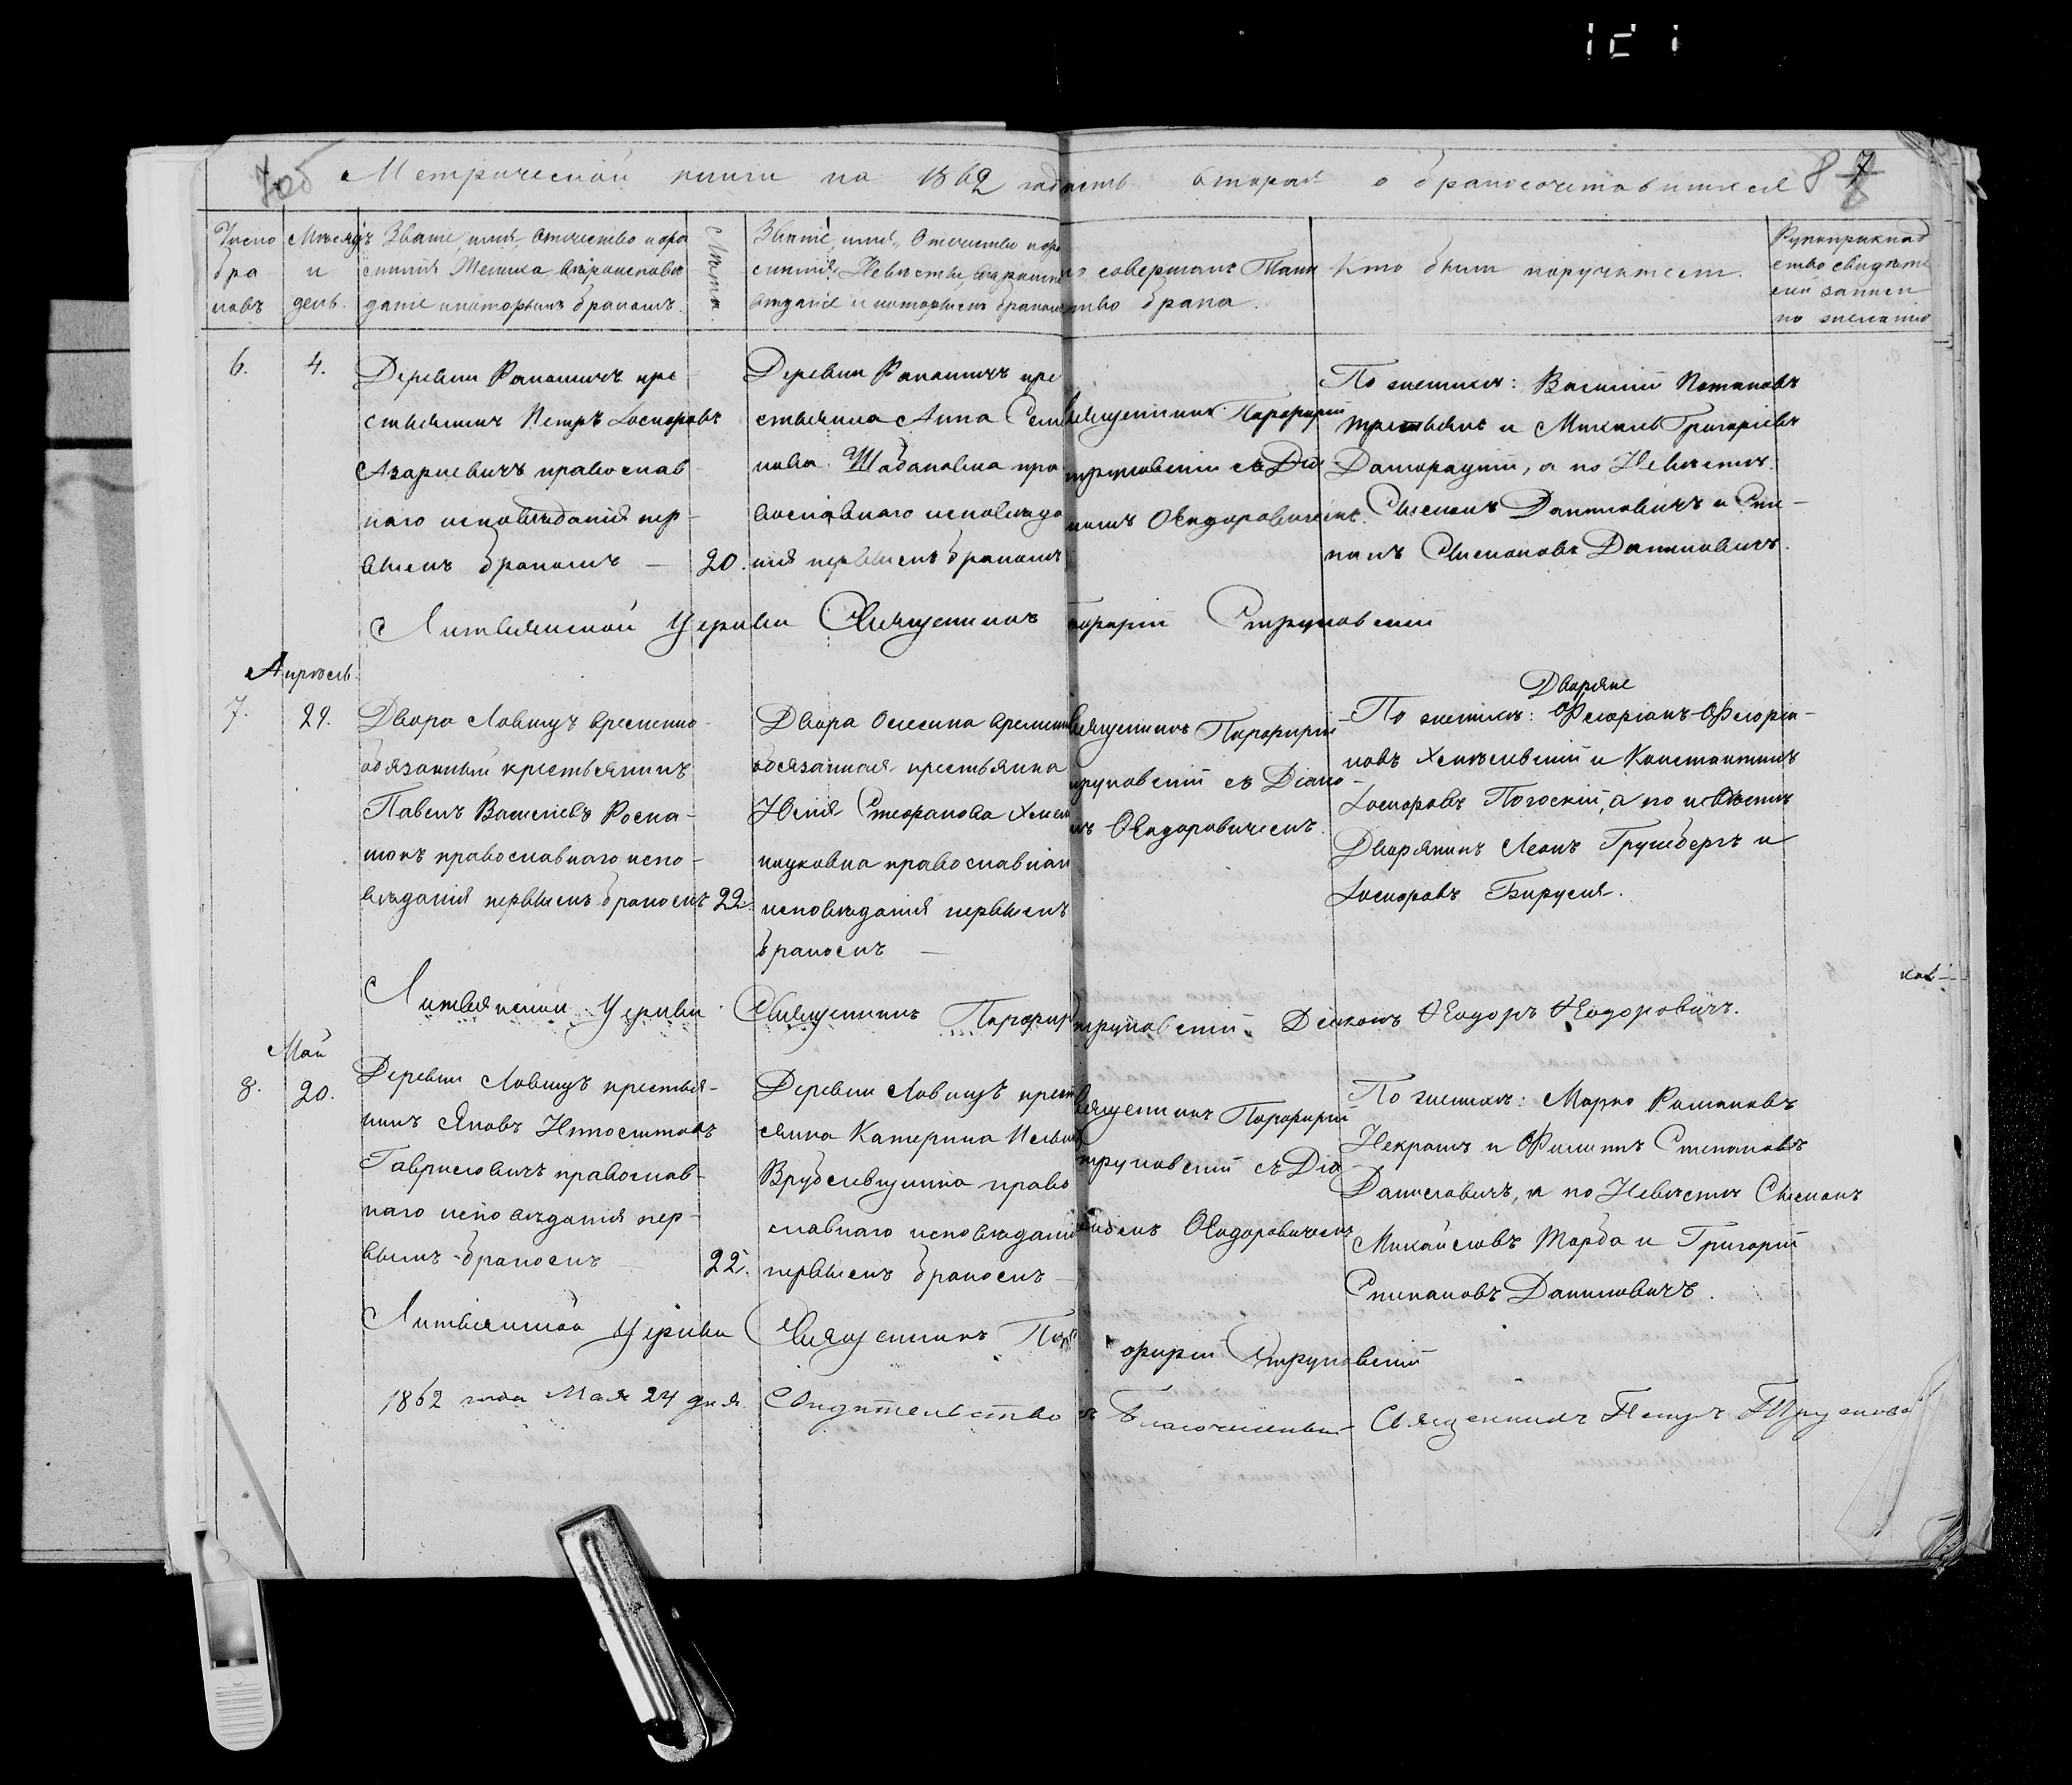 7об Метрической книги на 1862 годъ часть вторая о бракосочетавшихся 8 7
Число браковъ
Мѣсяцъ и день.
Званіе, имя, отчество и фамилія Жениха, вѣроисповѣданіе и которымъ бракомъ.
Лѣта.
Званіе, имя, Отчество и фамилія Невѣсты, вѣроисповѣданіе и которымъ бракомъ
совершалъ Таинство брака.
Кто были поручители.
Рукоприкладство свидѣтелей записи по желанію
6.
4.
Деревни Рапашичъ кре
стьянинъ Петръ Іосифовъ
Азаріевичъ православ
наго исповѣданія пер-
вымъ бракомъ — 20.
Деревни Рапашичъ кре
стьянка Анна Сем
нова Шабановна пра
вославнаго исповѣда
нія первымъ бракомъ
Священникъ Порфирій
труковскій съ Діа
комъ Ѳеодоровичемъ.
По женихѣ: Василій Потаповъ
Третьякъ и Михаилъ Григоріевъ
Даморацкій, а по Невѣстѣ
Сѵмеонъ Даниловичъ и Сте-
панъ Сѵмеоновъ Даниловичъ.
Литвянской Церкви Священникъ Порфирій Струковскій
Апрѣль
7.
29.
Двора Ловишъ временно-
обязанный крестьянинъ
Павелъ Василіевъ Роспа-
шокъ православнаго испо-
вѣданія первымъ бракомъ 22.
Двора временно
обязанная крестьянка
Юлія Стефанова
православнаго
исповѣданія первымъ
бракомъ —
Священникъ Порфирій
труковскій съ Діако-
мъ Ѳеодоровичемъ.
Дворяне
По женихѣ: Флоріанъ Флоріа-
новъ и Константинъ
Іосифовъ Погоскій, а по невѣстѣ
Дворянинъ Леонъ Грушбергъ и
Іосифовъ Бируля.
Литвянской Церкви Священникъ Порфир труковскій. Діаконъ Ѳеодоръ Ѳеодоровичъ.
Май
8.
20.
Деревни Ловишъ крестья-
нинъ Яковъ Ипполитовъ
Гавриловичъ православ-
наго исповѣданія пер-
вымъ бракомъ 22.
Деревни Ловишъ крест
янка Катерина
Врублевщинка право
славнаго исповѣданія
первымъ бракомъ —
Священникъ Порфирій
труковскій съ Діа
Ѳеодоровичемъ
По женихѣ: Марко Романовъ
Некрашъ и Филиппъ Степановъ
Даниловичъ, а по Невѣстѣ Сѵмеонъ
Михайловъ Жарба и Григорій
Степановъ Даниловичъ.
Литвянской Церкви Священникъ Порфирій Струковскій
1862 года Мая 24 дня. Свидѣтельство Благочинный Священникъ